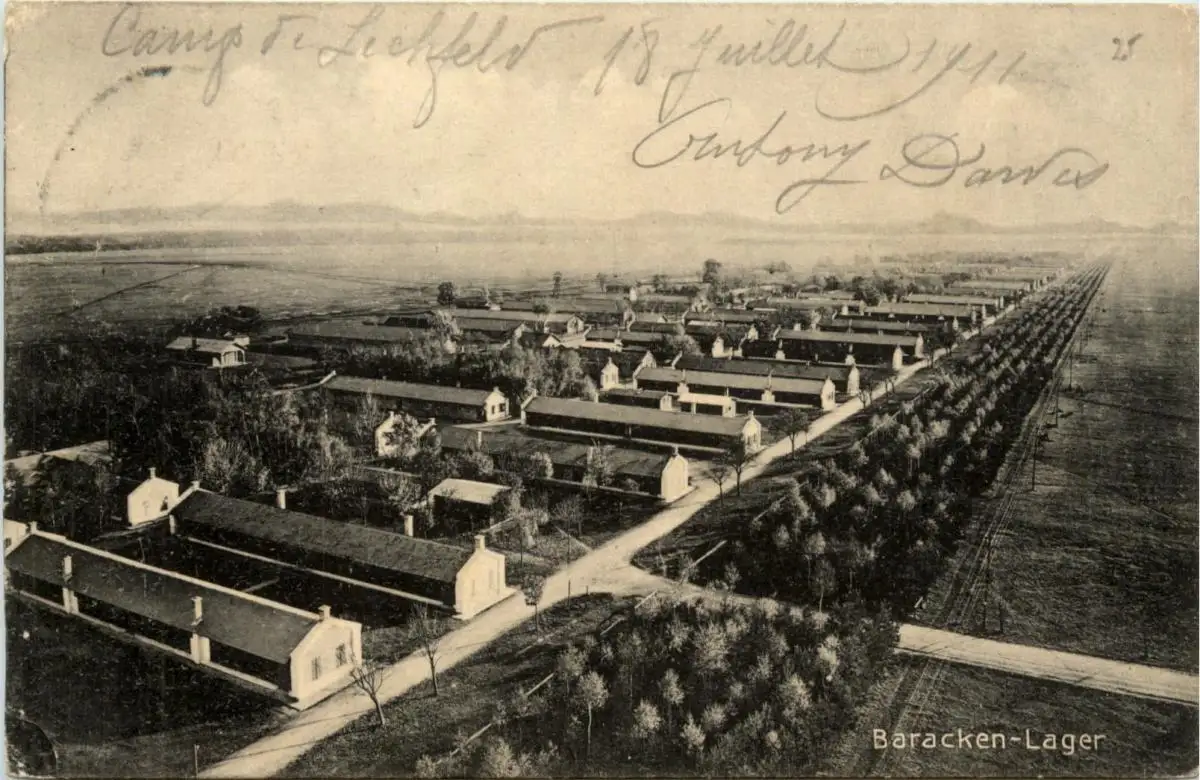 Camp de Lechfeld 18 Juillet 1911
25
Antony Darvès
Baracken-Lager